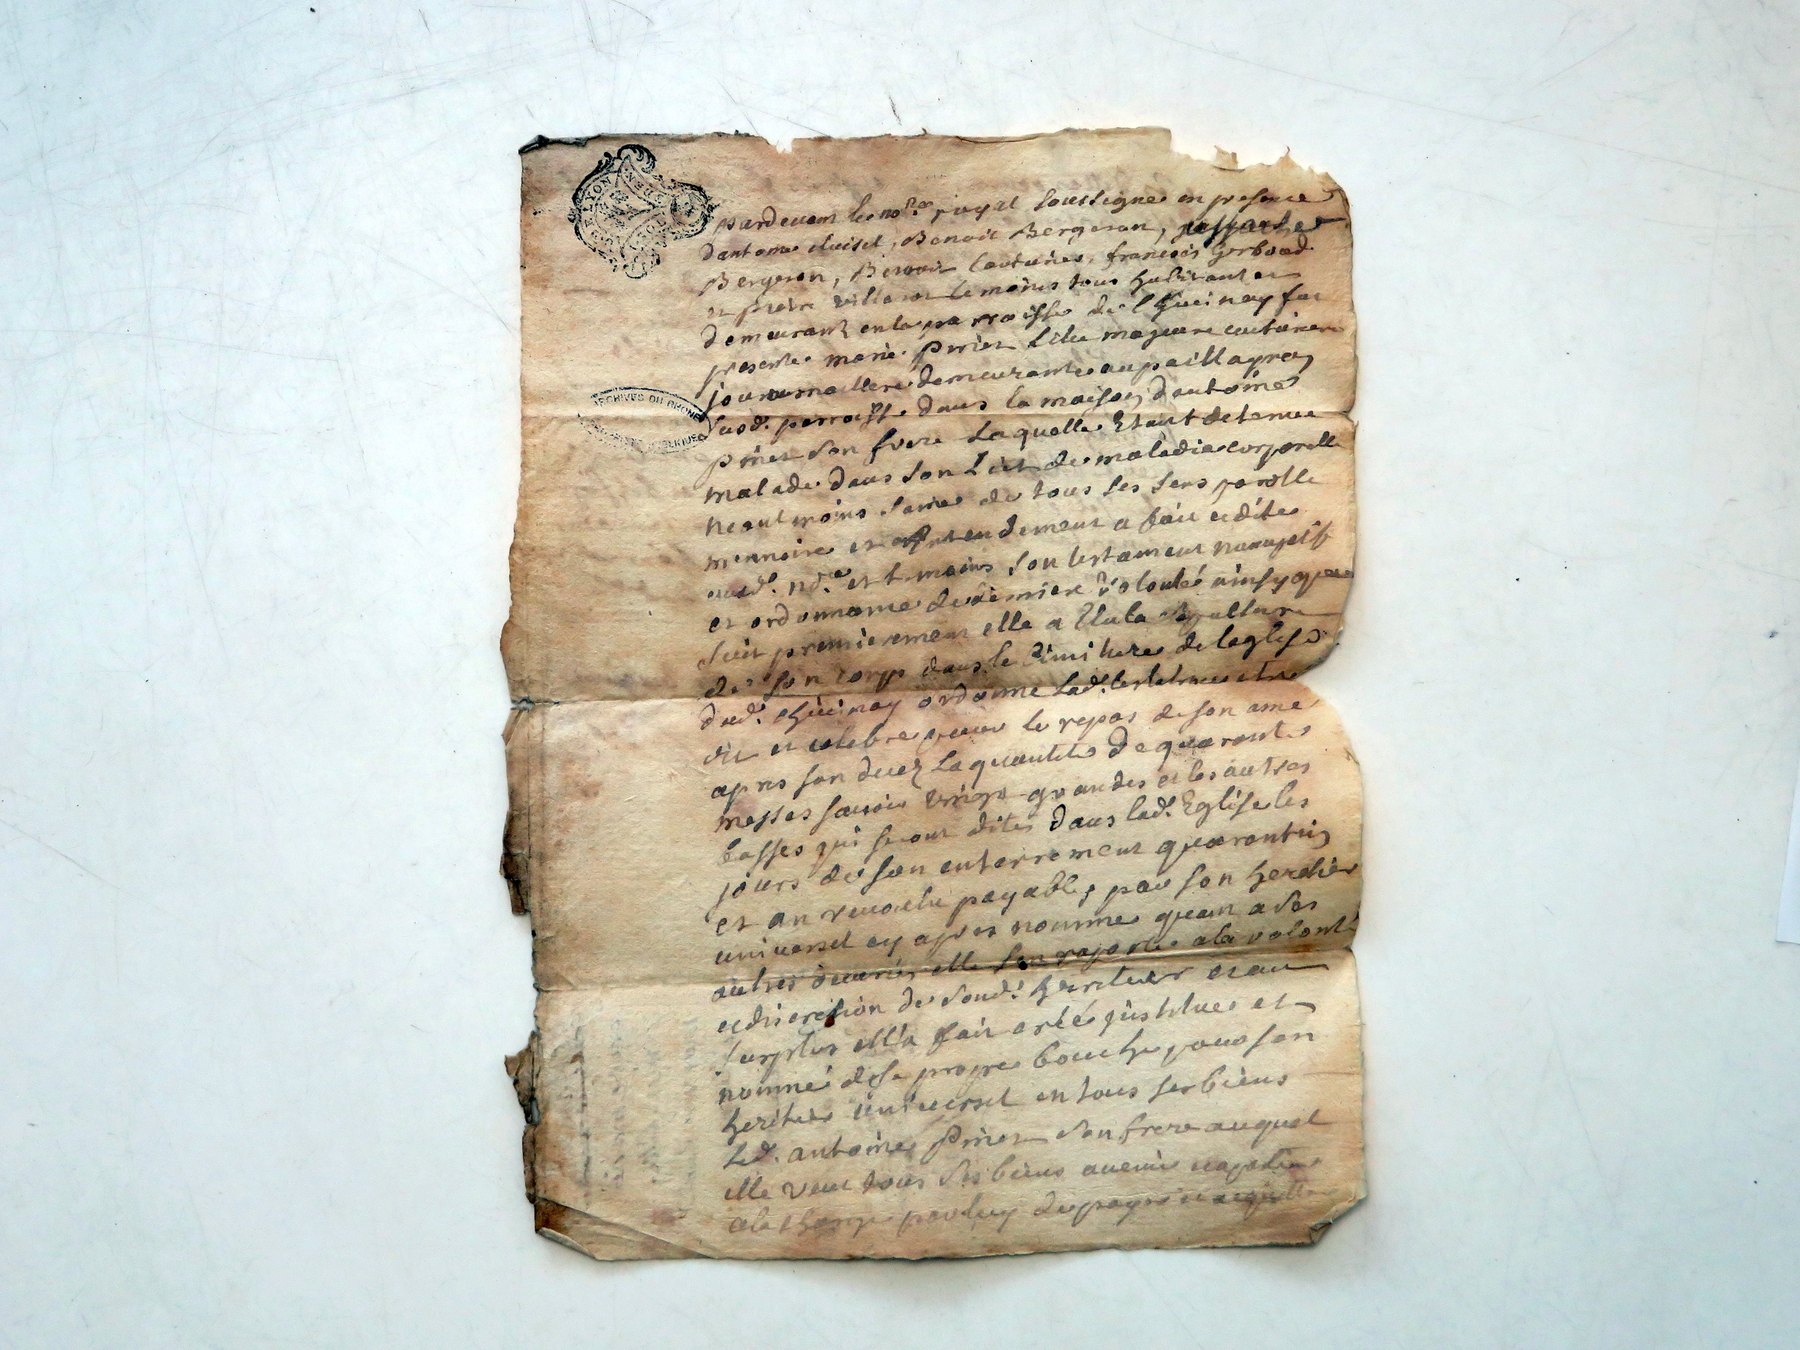 LYON
ARCHIVES DU RHONE
pardevant le no.re royal soussigné en presence
dantoine Benoit Bergeron,
Bergeron, Benoit françois Gerboud
et pierre temoins tous habitants et
demeurants en la parroisse de fut
presente marie Priest fille majeure couturiere
journailliere demeurante au
susd. parroisse dans la maison dantoine
Priest son frere laquelle Etant detenue
malade dans son Lict de maladie corporelle
neantmoins saine de tous ses sens parolle
memoire et entendement a fait et dite
aud. nd.re et temoins son testament nuncupatif
et ordonnance de derniere volonté ainsy que
suit premierement elle a Elu la sepulture
de son corps dans le Cimitiere de leglise
dud. ordonne lad. testatrice etre
dit et celebre pour le repos de son ame
apres son decez la quantite de quarante
messes savoir vingt grandes et les autres
basses qui seront dites dans lad. Eglise les
jours de son enterrement quarantin
et an revolu payables par son heritier
universel cy apres nommé quant a ses
autres œuvres elle sen raporte a la volonté
et discretion de sond. heritier et au
surplus ella fait créé justitue et
nommé de sa propre bouche pour son
heritier universel en tous ses biens
led. antoine Priest son frere auquel
elle veut tous ses biens avenir
a la charge par luy de payer et acquitter